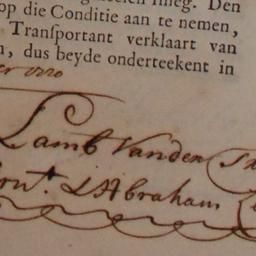 op die Conditie aan te nemen,
Tranſportant verklaart van
, dus beyde onderteekent in
Lamb Vanden
Abraham